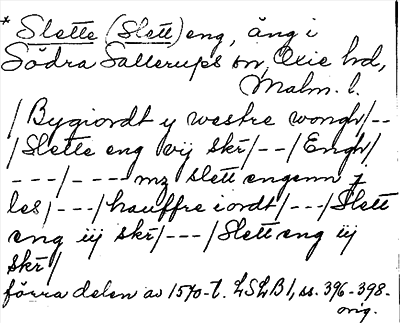 * Slette (Slett)eng, äng i
Södra Sallerups sn, Oxie hd,
Malm. l.
/Bygiordt y westre wongh/--
/Slette eng vij skr/--/Engh/
---/----mz slettengenn j
les/---/hauffre iordt/---/Slett
eng iij skr/---/Sletteng iij
skr/
förra delen av 1570-t. LSLB1, ss. 396-398.
orig.